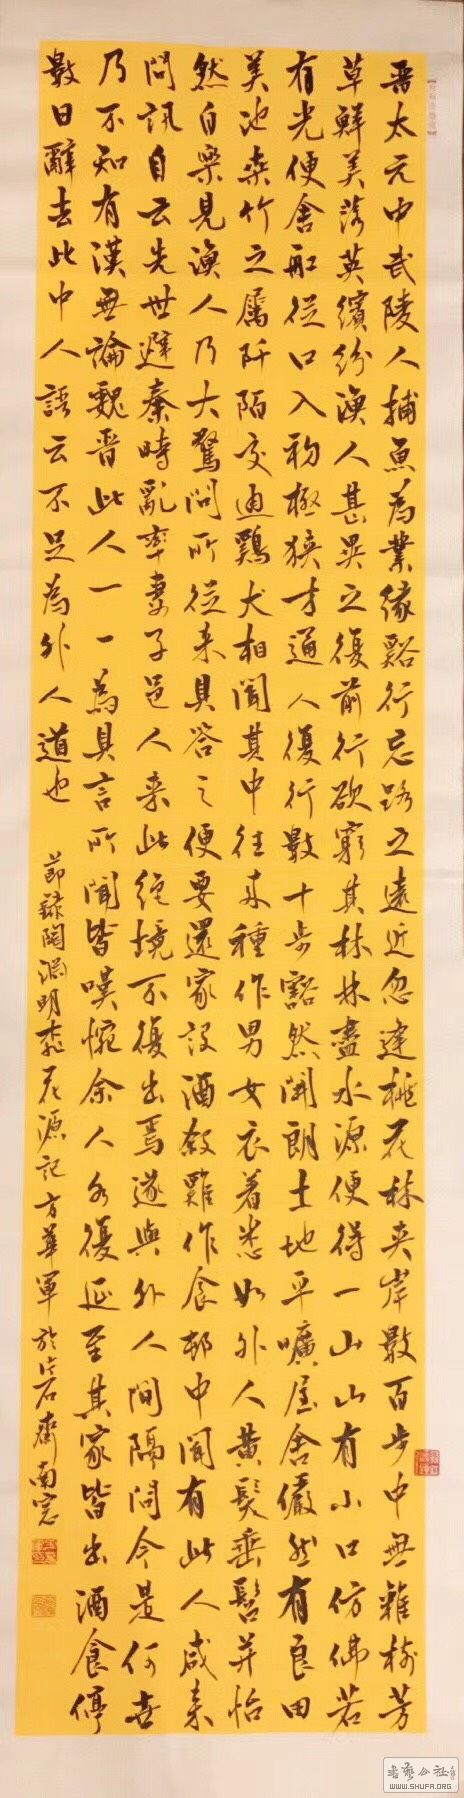 晋太元中武陵人捕魚為業缘谿行忘路之遠近忽逢桃花林夹岸數百步中無雜树芳
草鮮美落英繽纷漁人甚異之復前行欲窮其林林盡水源便得一山山有小口仿佛若
有光便舍船從口入初極狭才通人復行數十步豁然開朗土地平曠屋舍儼然有良田
美池桑竹之屬阡陌交通鷄犬相聞其中往来種作男女衣着悉如外人黄髮垂髫并怡
然自樂見漁人乃大驚問所從来具答之便要還家設酒殺雞作食邨中聞有此人咸来
問訊自云先世避秦時亂率妻子邑人来此绝境不復出焉遂與外人間隔問今是何世
乃不知有漢無論魏晋此人一一為具言所聞皆嘆惋余人各復延至其家皆出酒食停
數日辭去此中人語云不足為外人道也
節録陶渊明桃花源記方華軍於片石齋南窓
书艺公社
WWW.SHUFA.ORG